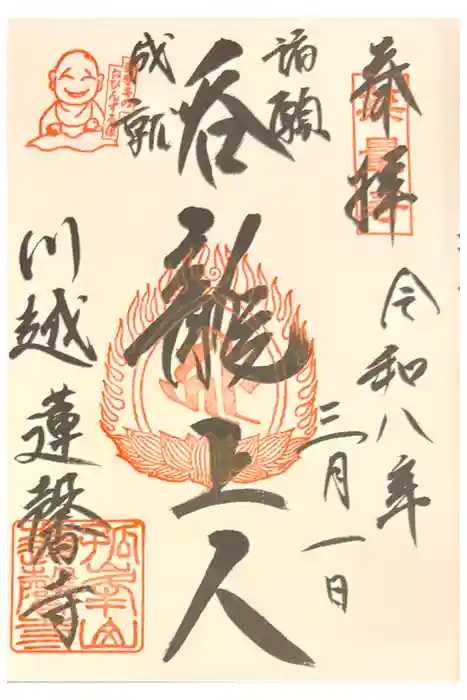 奉拝
令和八年
三月一日
諸願
成就
呑龍上人
川越 蓮馨寺